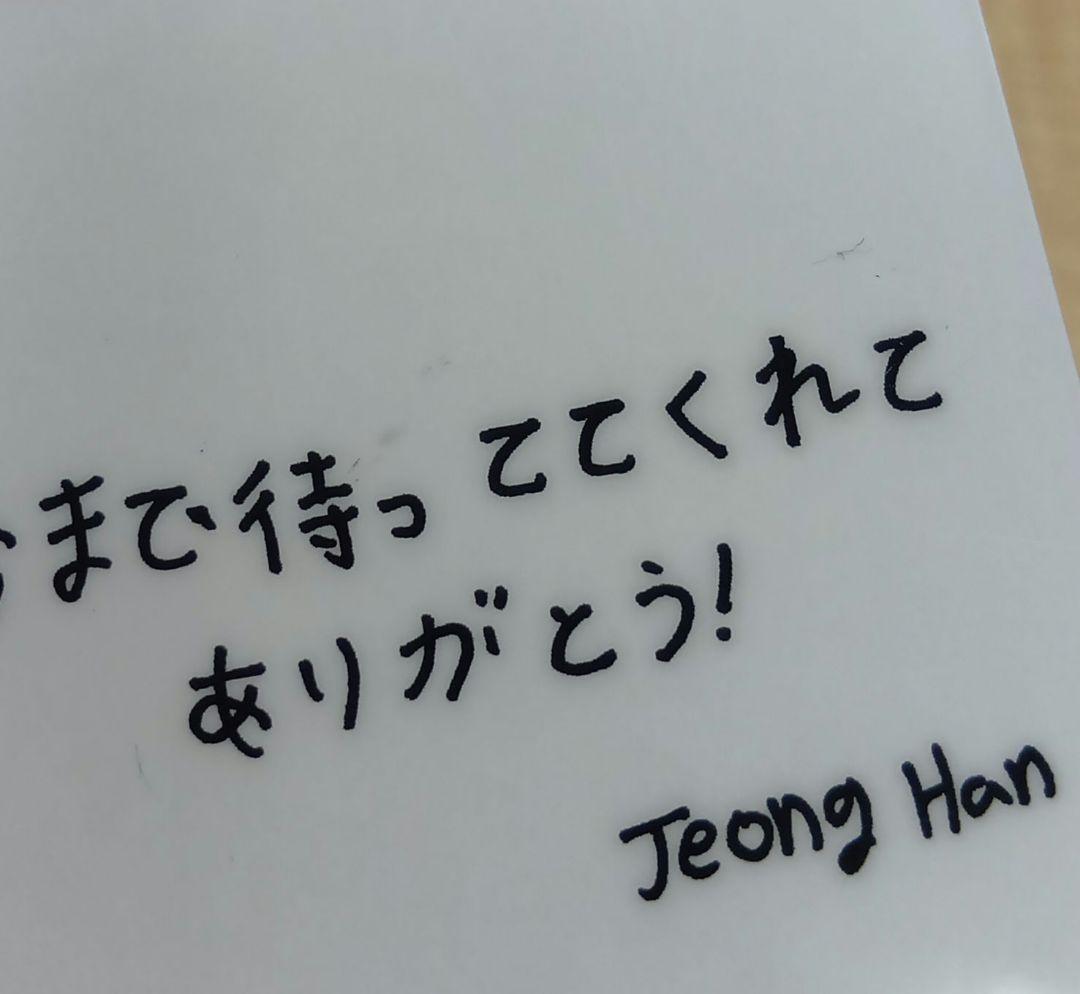 まで待っててくれて
ありがとう!
Jeong Han